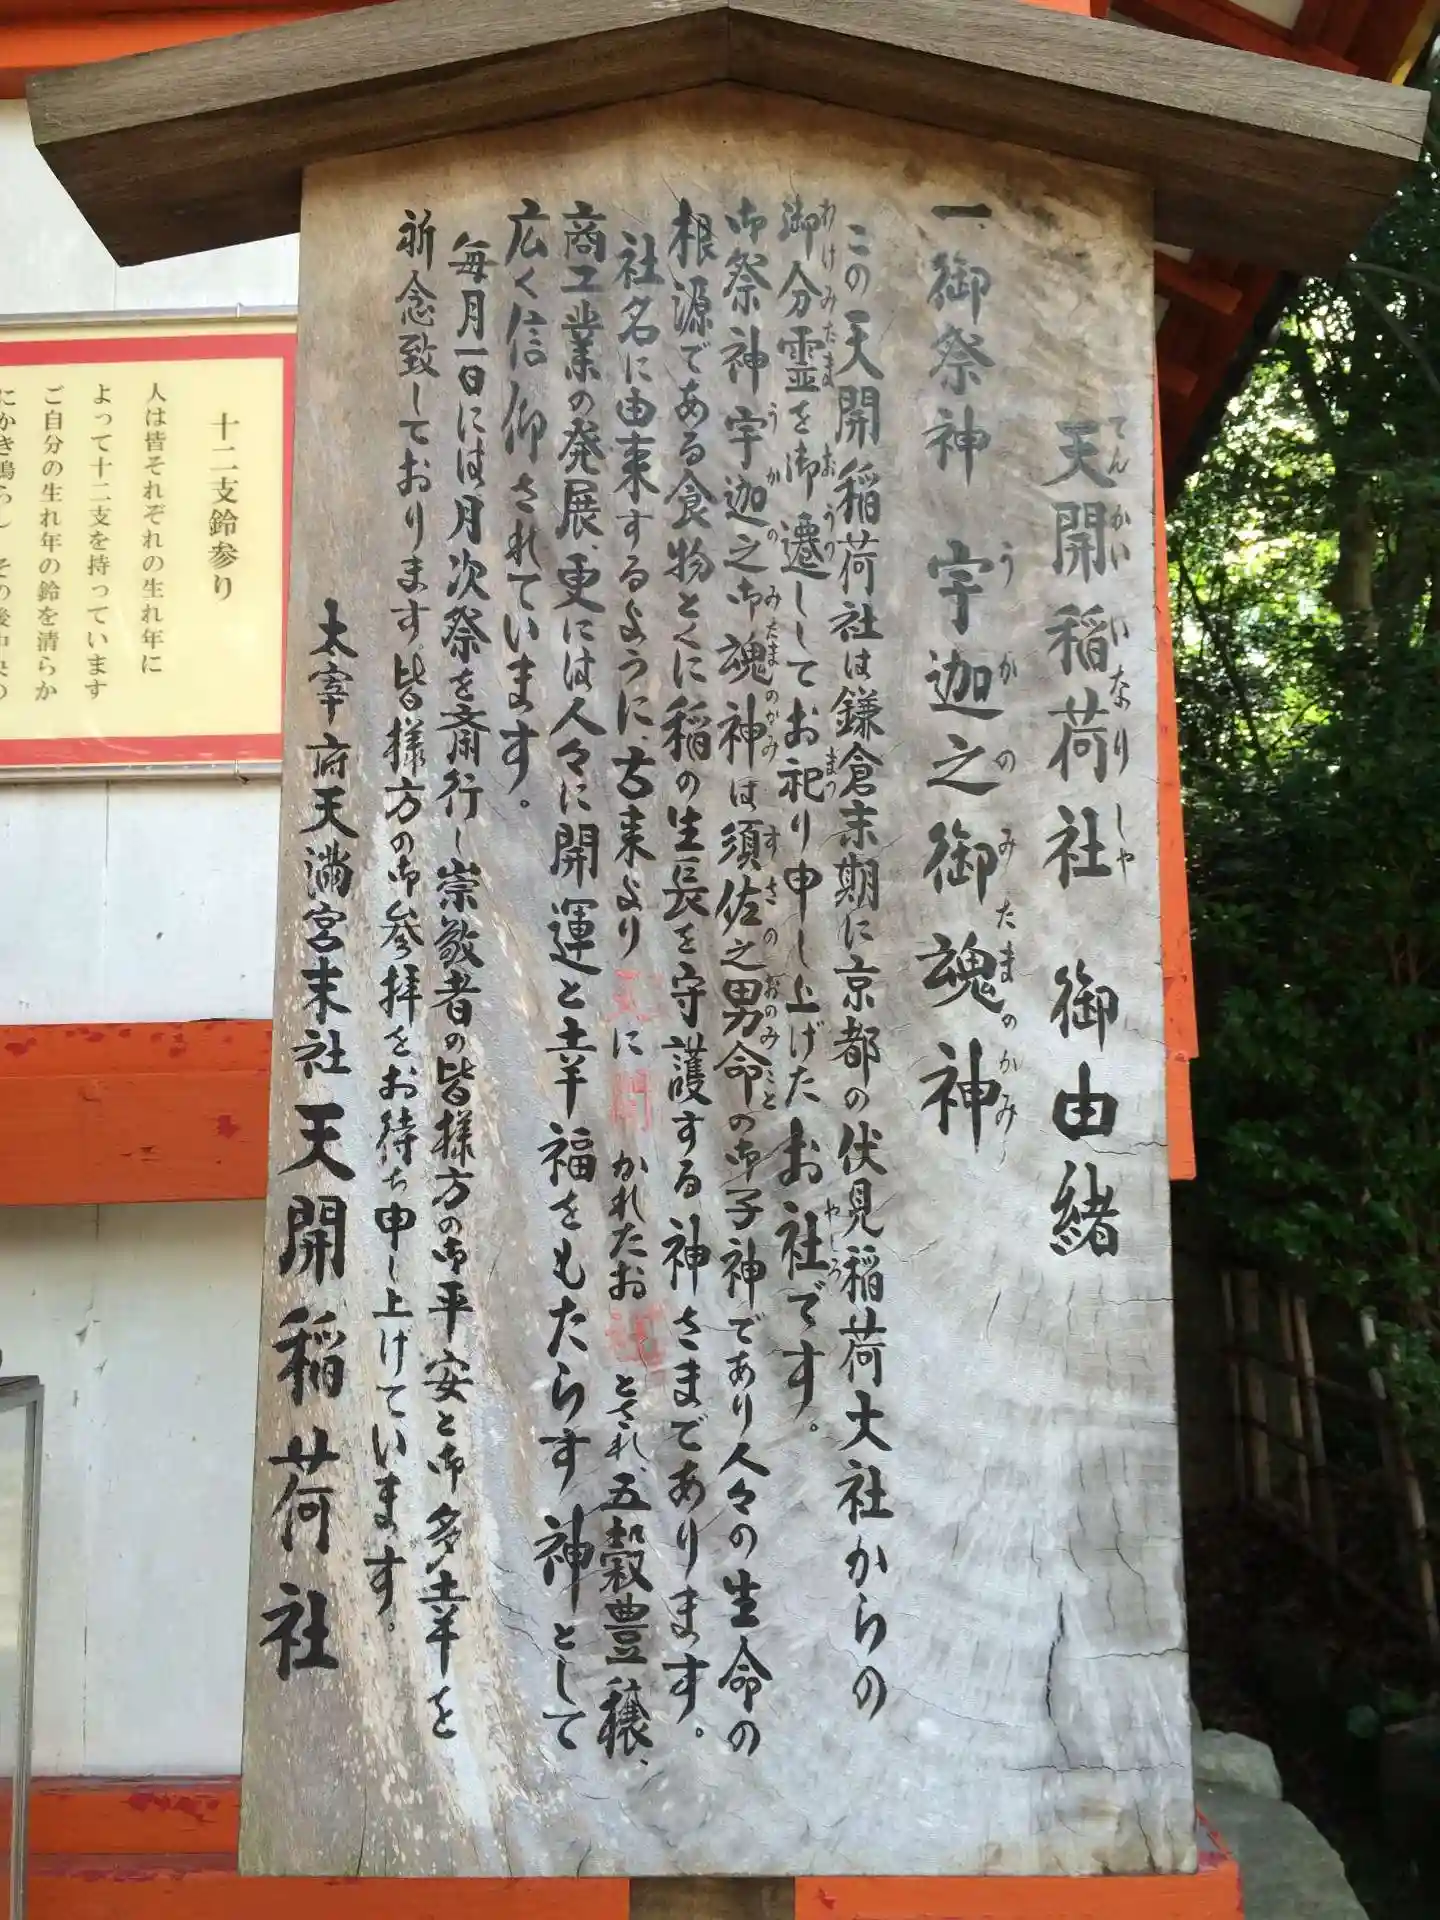 天開稲荷社 御由緒
てんかいいなりしゃ
一、御祭神 宇迦之御魂神
うかのみたまのかみ
この天開稲荷社は鎌倉末期に京都の伏見稲荷大社からの
御分霊を御遷ししてお祀り申し上げたお社です。
わけみたま おうつ まつ やしろ
御祭神宇迦之御魂神は須佐之男命の御子神であり人々の生命の
うかのみたまのかみ すさのおのみこと
根源である食物とくに稲の生長を守護する神さまであります。
社名に由来するように、古来より天に開かれたお社とされ五穀豊穣、
商工業の発展、更には人々に開運と幸福をもたらす神として
広く信仰されています。
毎月一日には月次祭を斎行し崇敬者の皆様方の御平安と御多幸を
祈念致しております。皆様方の御参拝をお待ち申し上げています。
太宰府天満宮末社 天開稲荷社
十二支鈴参り
人は皆それぞれの生れ年に
よって十二支を持っています
ご自分の生れ年の鈴を清らか
にかき鳴らし その後中央の